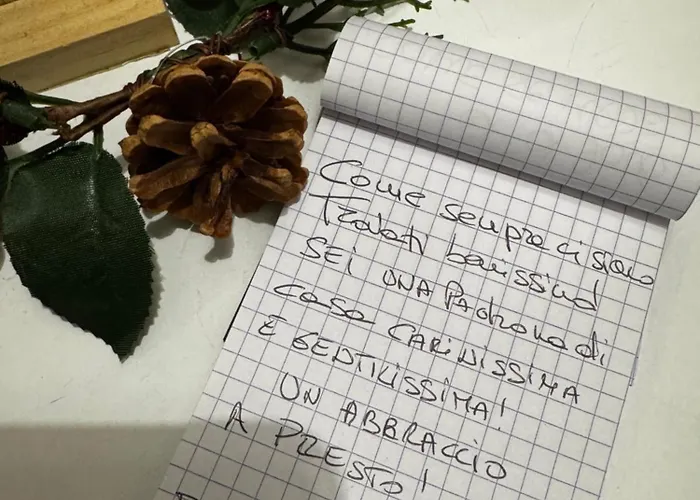 Come sempre ci siamo
Trovati benissimo
SEI UNA Padrona di
casa CARINISSIMA
E GENTILISSIMA!
UN ABBRACCIO
A PRESTO!